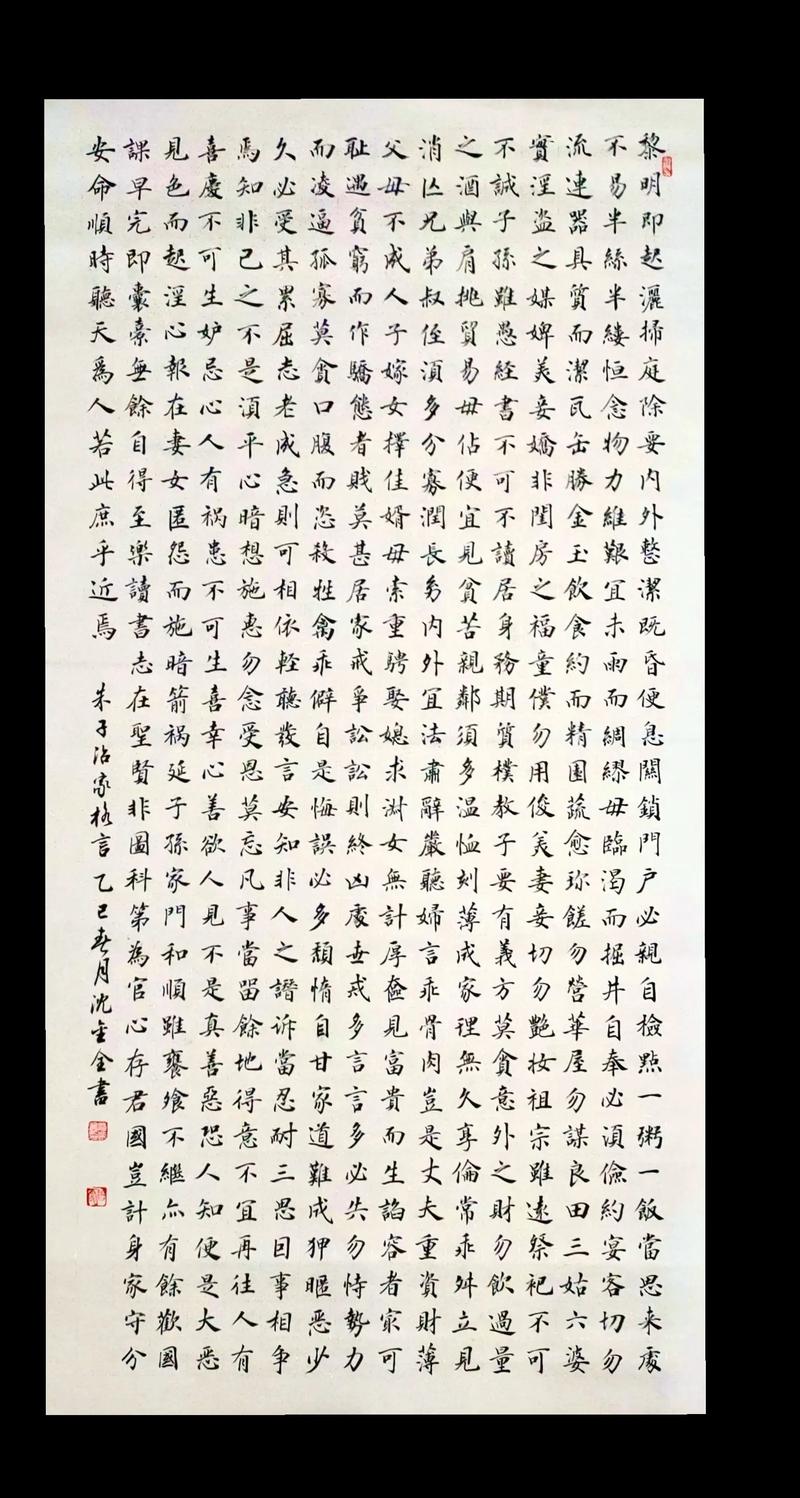 黎明即起灑掃庭除要内外整潔既昏便息關鎖門户必親自檢點一粥一飯當思来處
不易半絲半縷恒念物力維艱宜未雨而綢繆毋臨渴而掘井自奉必須儉約宴客切勿
流連器具質而潔瓦缶勝金玉飲食約而精園蔬愈珍饈勿營華屋勿謀良田三姑六婆
實淫盗之媒婢美妾嬌非閨房之福童僕勿用俊美妻妾切勿艷妆祖宗雖遠祭祀不可
不誠子孫雖愚経書不可不讀居身務期質樸教子要有義方莫貪意外之財勿飲過量
之酒與肩挑貿易毋佔便宜見貧苦親鄰須多温恤刻薄成家理無久享倫常乖舛立見
消亾兄弟叔侄須多分寡潤長幼内外宜法肅辭嚴聽婦言乖骨肉豈是丈夫重資財薄
父母不成人子嫁女擇佳婿毋索重聘娶媳求淑女無計厚奩見富貴而生諂容者冣可
耻遇貧窮而作驕態者賎莫甚居家戒爭訟訟則終凶處世戒多言言多必失勿恃勢力
而凌逼孤寡莫貪口腹而恣殺牲禽乖僻自是悔誤必多頽惰自甘家道難成狎暱惡少
久必受其累屈志老成急則可相依輕聽發言安知非人之譖诉當忍耐三思因事相争
焉知非己之不是須平心暗想施惠勿念受恩莫忘凡事當留餘地得意不宜再往人有
喜慶不可生妒忌心人有祸患不可生喜幸心善欲人見不是真善惡恐人知便是大惡
見色而起淫心報在妻女匿怨而施暗箭祸延子孫家門和順雖饔飧不繼亦有餘歡國
課早完即囊橐無餘自得至樂讀書志在聖賢非圖科第為官心存君國豈計身家守分
安命順時聽天爲人若此庶乎近焉 朱子治家格言乙巳春月沈金全書